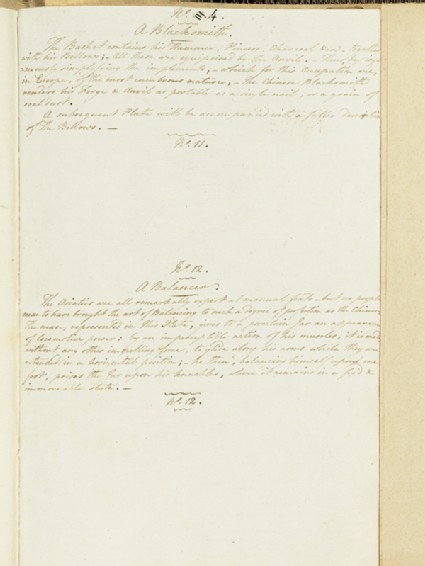 No. 4.
A Blacksmith.
The Basket contains his Hammers, Pincers, charcoal &c. together
with his Bellows; All these are
simplifying the implements, which for this occupation are,
in Europe, of the most cumbrous nature, the Chinese Blacksmith
renders his Forge & Anvil as portable as a single nail, or a grain of
coal dust.
A subsequent Plate will be accompanied with a fuller
of the Bellows. —
No. 11.
No. 12.
A Balancer.
The Asiatics are all remarkably expert at manual feats, but no people
seem to have brought the art of Balancing to such a degree of perfection as the Chinese.
The man, represented in this Plate, gives to a porcelain Jar an appearance
of locomotive power: by an imperceptible action of the muscles, it is seen
without any other impelling force, to glide along his arms while they are
extended in a horizontal position; he then, balancing himself upon one
foot, poises the Jar upon his knuckles, where it remains in a fixed &
immovable state. —
No. 12.